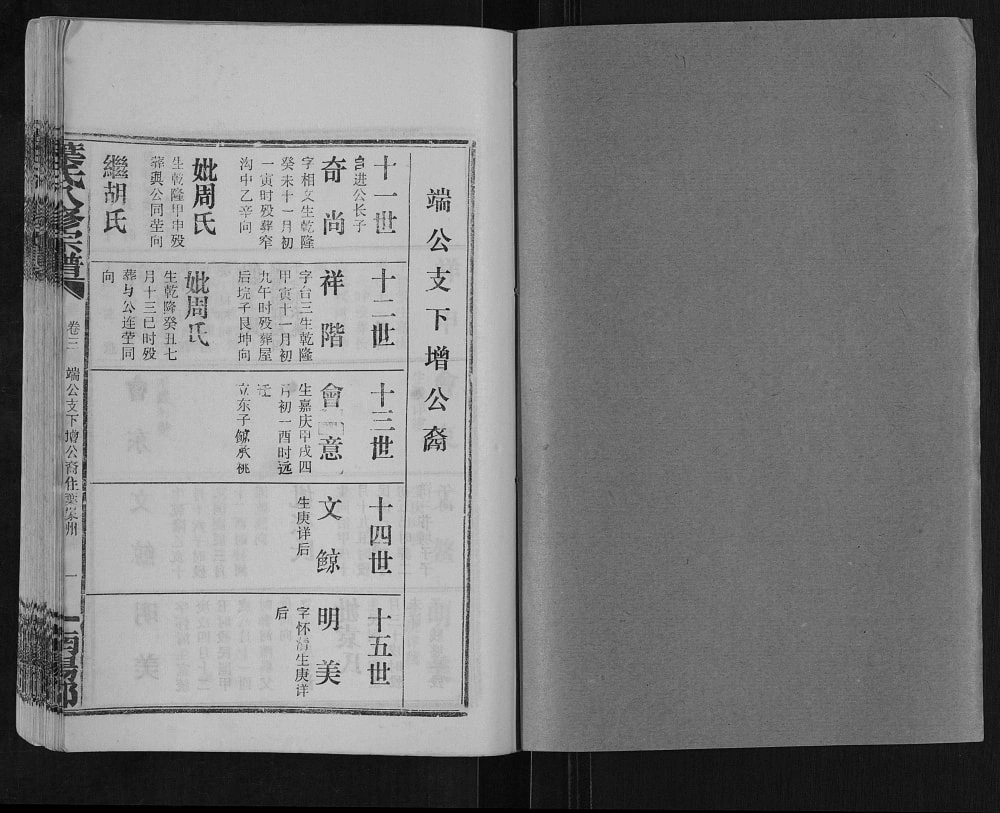 端公支下增公裔
十一世
进公长子
奇尚
字相文生乾隆
癸未十一月初
一寅时殁葬窄
沟中乙辛向
妣周氏
生乾隆甲申殁
葬與公同茔向
繼胡氏
十二世
祥階
字台三生乾隆
甲寅十一月初
九午时殁葬屋
后垸子艮坤向
妣周氏
生乾隆癸丑七
月十三巳时殁
葬与公连茔同
向
十三世
會意
生嘉庆甲戌四
月初一酉时远
迁
立东子鲸承桃
十四世
文鲸
生庚详后
十五世
明美
字怀清生庚详
后
葉氏八修宗譜
卷三
端公支下增公裔住葉家州
一
南陽郡